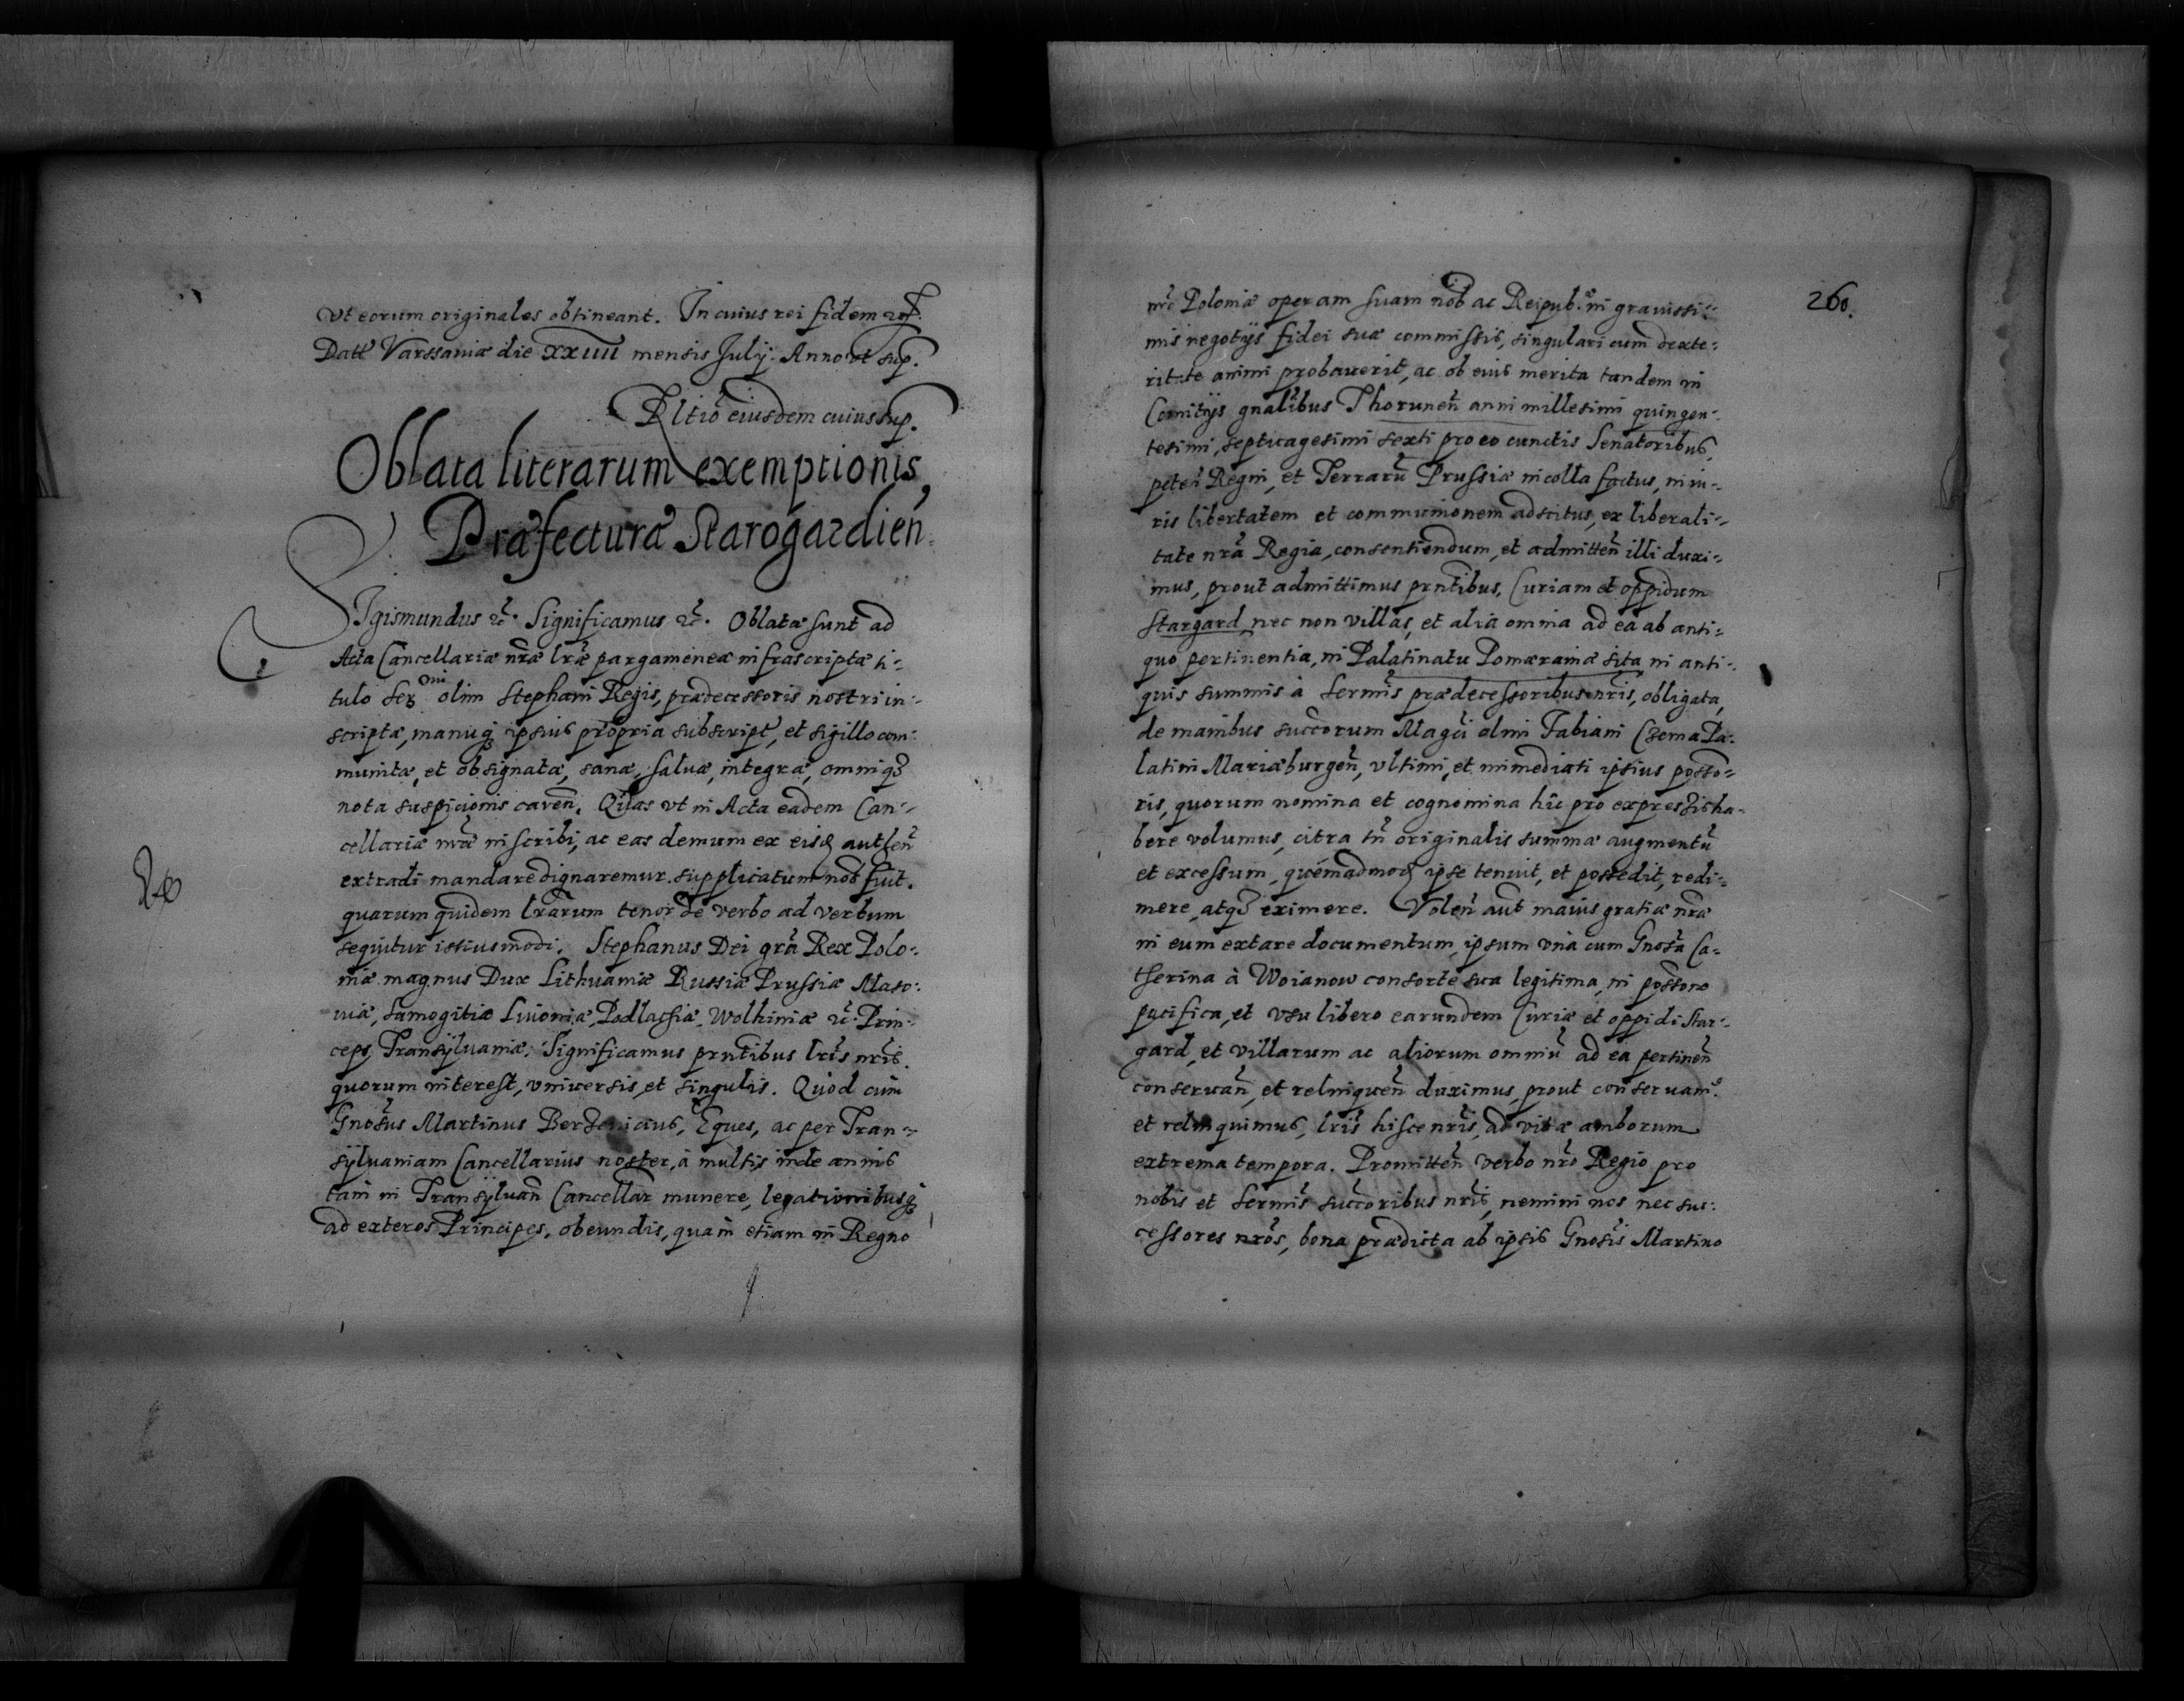 vt eorum originales obtineant. In cuius rei fidem etc.
Datt Varssaniæ die XXIIII mensis Julij. Anno vt sup.
Rltiõ eiusdem cuius sup.
Oblata literarum exemptionis
Præfecturæ Starogardien̄.
SIgismundus etc. Significamus etc. Oblatæ sunt ad
Acta Cancellariæ nr̃æ lr̃æ pargameneæ infrascriptæ ti-
tulo Ser^mi olim Stephani Regis, prædecessoris nostri in-
scriptæ, manuq̨ ipsius propria subscript, et sigillo com-
munitæ, et obsignatæ, sanæ, saluæ, integræ, omniq̨
nota suspicionis caren̄. Quas vt in Acta eadem Can-
cellariæ nr̃æ inscribi, ac eas demum ex eisd authen̄
extradi mandare dignaremur supplicatum nob̃ fuit.
quarum quidem lr̃arum tenor de verbo ad verbum
sequitur istiusmodi. Stephanus Dei gr̃a Rex Polo-
niæ magnus Dux Lithuaniæ Russiæ Prussiæ Maso-
uiæ, Samogitiæ Liuoniæ, Podlachiæ, Wolhiniæ etc. Prin-
ceps Transÿluaniæ. Significamus prñtibus lr̃is nr̃is.
quorum interest, vniuersis, et singulis. Quod cum
Gnosus Martinus Berzeuicius, Eques, ac per Tran-
sÿluaniam Cancellarius noster, à multis inde annis
tam in Transÿluan̄ Cancellar munere, legationibusq̨
ad exteros Principes, obeundis, quam etiam in Regno
260.
nr̃o Poloniæ operam suam nob̃ ac Reipub. in grauissi-
mis negotijs fidei suæ commissis, singulari cum dexte-
ritate animi probauerit, ac ob eius merita tandem in
Comitijs gnalibus Thorunen̄ anni millesimi quingen-
tesimi, septuagesimi sexti pro eo cunctis Senatoribus,
peten̄ Regni, et Terrarũ Prussiæ incolla factus, in iu-
ris libertatem et communionem adscitus, ex liberali-
tate nr̃a Regia, consentiendum, et admitten̄ illi duxi-
mus, prout admittimus prñtibus, Curiam et oppidum
Stargard, nec non villas, et alia omnia ad ea ab anti-
quo pertinentia, in Palatinatu Pomæraniæ sita, in anti-
quis summis à Sermis prædecessoribus nr̃is, obligata,
de manibus succorum Magci olmi Fabiani Czema Pa-
latini Mariæburgen̄, vltimi, et immediati ipsius posso-
ris, quorum nomina et cognomina hic pro expressis ha-
bere volumus, citra tñ originalis summæ augmentũ
et excessum, quemadmod ipse tenuit, et possedit, redi-
mere, atq̨ eximere. Volen̄ aut maius gratiæ nr̃æ
in eum extare documentum, ipsum vna cum Gnosa Ca-
therina à Woianow consorte sua legitima, in possone
pacifica, et vsu libero earundem Curiæ et oppidi Star-
gard, et villarum ac aliorum omniũ ad ea pertinen̄
conseruan̄, et relinquen̄ duximus, prout conseruam⁹.
et relinquimus, lr̃is hisce nr̃is, ad vitæ amborum
extrema tempora. Promitten̄ verbo nr̃o Regio pro
nobis et Sermis succoribus nr̃is, nemini nos nec suc-
cessores nr̃os, bona prædicta ab ipsis Gnosis Martino